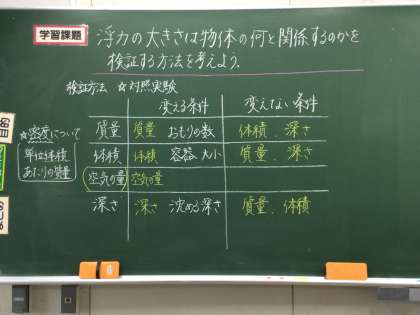 学習課題
浮力の大きさは物体の何と関係するのかを
検証する方法を考えよう。
検証方法 ☆対照実験
変える条件 変えない条件
質量 質量 おもりの数 体積、深さ
体積 体積 容器 大小 質量、深さ
空気の量 空気の量
深さ 深さ 沈める深さ 質量、体積
☆密度について
単位体積
あたりの質量
目的